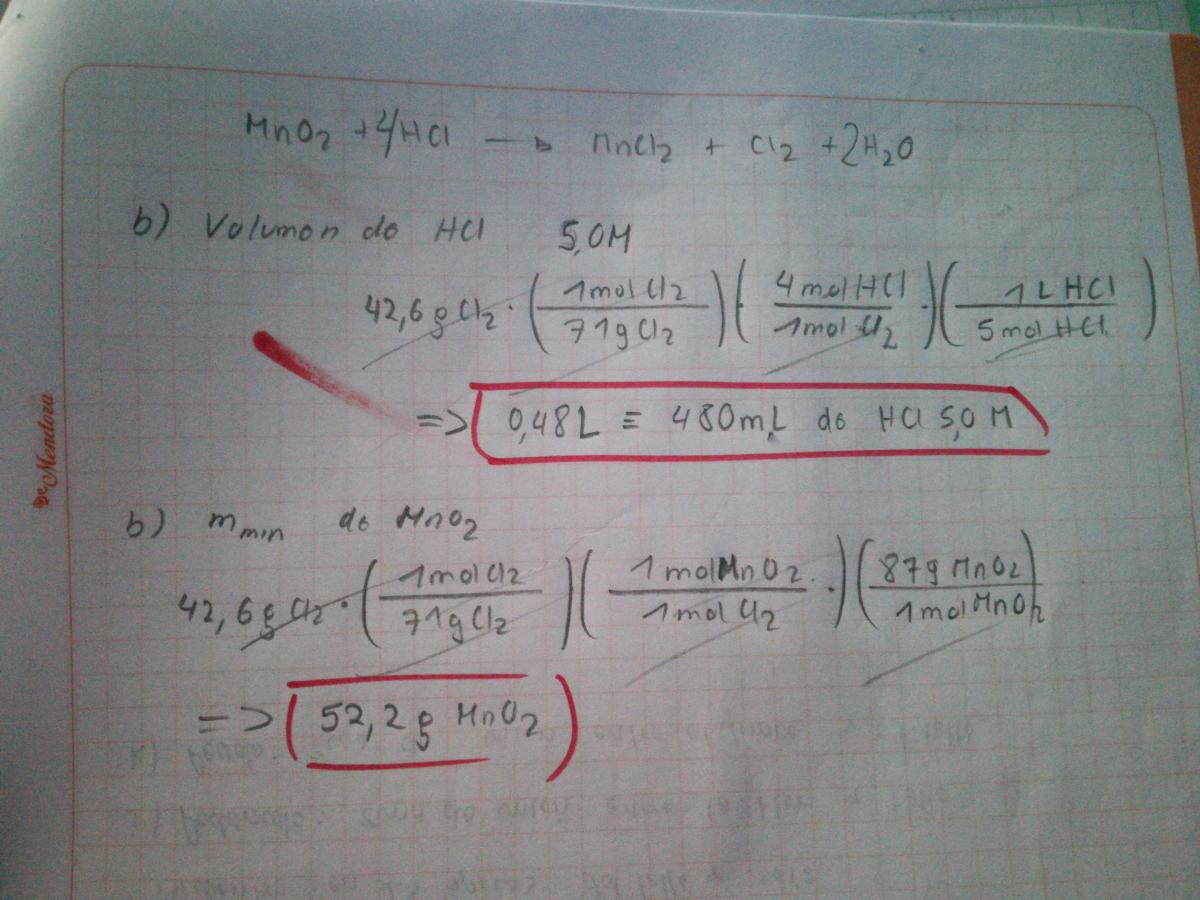 MnO₂ + 4HCl → MnCl₂ + Cl₂ + 2H₂O
b) Volumen de HCl 5,0M
42,6 g Cl₂ · (1 mol Cl₂ / 71 g Cl₂) (4 mol HCl / 1 mol Cl₂ ·) (1 L HCl / 5 mol HCl)
=> 0,48L ≡ 480 mL de HCl 5,0 M
b) m min de MnO₂
42,6 g Cl₂ · (1 mol Cl₂ / 71 g Cl₂) (1 mol MnO₂ / 1 mol Cl₂ ·) (87 g MnO₂ / 1 mol MnO₂)
=> (52,2 g MnO₂)
De Mendoza